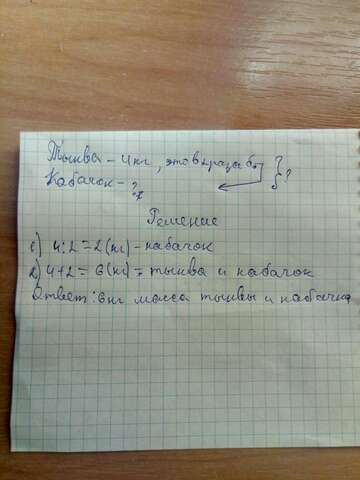 Тыква - 4 кг, это в 2 раза б. }?
Кабачок - ?
Решение
1) 4:2=2(кг) - кабачок
2) 4+2=6(кг) = тыква и кабачок
Ответ: 6 кг масса тыквы и кабачка